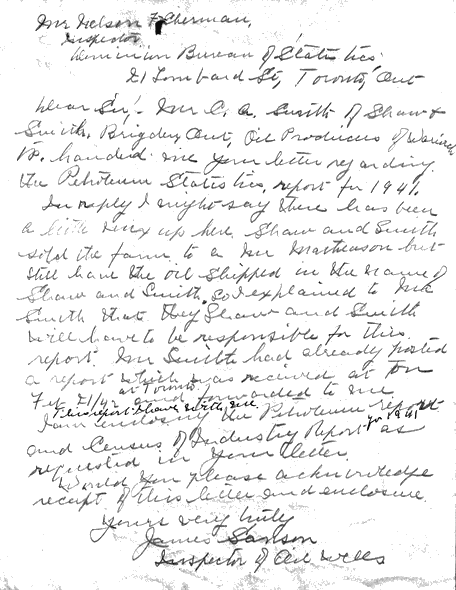 Mr Nelson F Sherman,
Inspector
Dominion Bureau of Statistics
21 Lombard St, Toronto, Ont
Dear Sir: Mr C. A. Smith of Shaw &
Smith, Brigden, Ont, Oil Producers of Warwick
Tp. handed me your letter regarding
the Petroleum Statistics, report for 1941.
In reply I might say there has been
a little mix up here. Shaw and Smith
sold the farm to a Mr Matheson but
still have the oil shipped in the name of
Shaw and Smith. So I explained to Mr
Smith that they Shaw and Smith
will have to be responsible for this
report. Mr Smith had already posted
a report which was received at on
at Toronto
Feb 21/42 and forwarded to me
This report I have with me
I am enclosing the Petroleum report
for 1941
and Census of Industry Report as
requested in your letter.
Would you please acknowledge
receipt of this letter and enclosure
Yours very truly
James Sanson
Inspector of Oil Wells